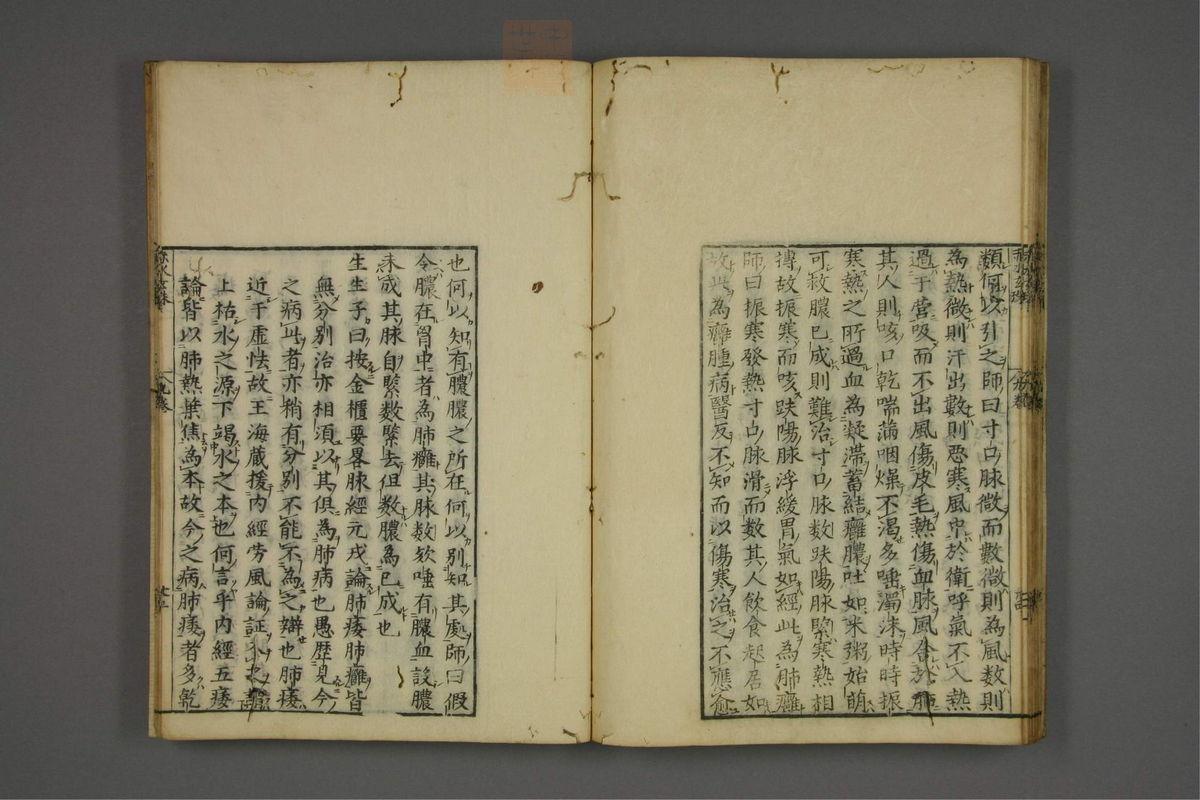 類何以引之師曰寸口脉微而數微則為風数則
為熱微則汗出數則惡寒風中於衛呼氣不入熱
過于營吸而不出風傷皮毛熱傷血脉風舎於肺
其人則咳口乾喘滿咽燥不渴多唾濁沫時時振
寒熱之所過血為凝滯蓄結癰膿吐如米粥始萌
可救膿已成則難治寸口脉数趺陽脉緊寒熱相
摶故振寒而咳趺陽脉浮緩胃氣如經此為肺癰
師曰振寒發熱寸口脉滑而数其人飲食起居如
故此為癰腫病醫反不知而以傷寒治之不應愈
也何以知有膿膿之所在何以別知其處師曰假
令膿在胷中者為肺癰其脉数欬唾有膿血設膿
未成其脉自緊数緊去但数膿為已成也
生生子曰按金櫃要畧脉經元戎論肺痿肺癰皆
無分別治亦相須以其俱為肺病也愚歴見今
之病此者亦稍有分別不能不為之辯也肺痿
近于虚怯故王海蔵援内經勞風論証
上枯水之源下竭水之本也何言乎内經五痿
論皆以肺熱葉焦為本故今之病肺痿者多乾